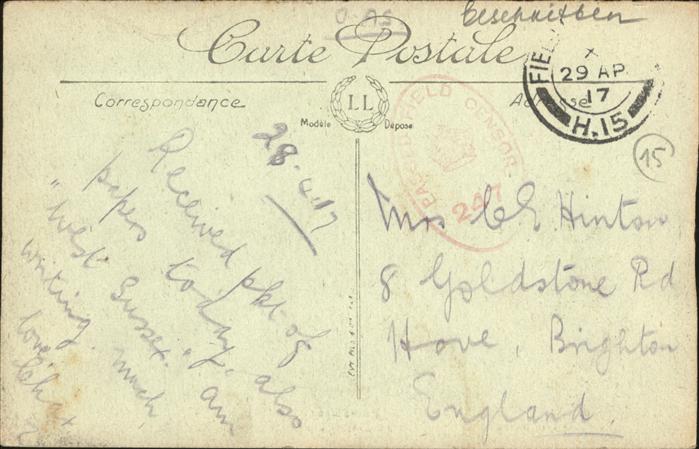 O.A.S
beschnitten
Carte Postale
FIEL
X
29 AP
17
H.15
Correspondance
Adresse
LL
Modèle Déposé
FIELD CENSOR
247
15
28.4.17
Received pkt of
papers today, also
"West Sussex." Am
writing much
love
Mrs C E Hinton
8 Goldstone Rd
Hove, Brighton
England